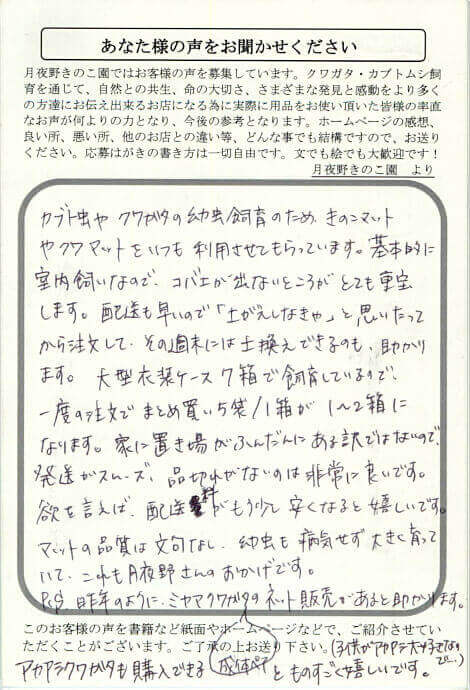 あなた様の声をお聞かせください
月夜野きのこ園ではお客様の声を募集しています。クワガタ・カブトムシ飼
育を通じて、自然との共生、命の大切さ、さまざまな発見と感動をより多く
の方達にお伝え出来るお店になる為に実際に用品をお使い頂いた皆様の率直
なお声が何よりの力となり、今後の参考となります。ホームページの感想、
良い所、悪い所、他のお店との違い等、どんな事でも結構ですので、お送り
ください。応募はがきの書き方は一切自由です。文でも絵でも大歓迎です！
月夜野きのこ園　より
カブト虫や クワガタの幼虫飼育のため、きのこマット
やクワマットをいつも利用させてもらっています。基本的に
室内飼いなので、コバエが出ないところが とても重宝
します。配送も早いので「土がえしなきゃ」と思いたって
から注文して、その週末には土換えできるのも、助かり
ます。 大型衣装ケース7箱で飼育しているので、
一度の注文で まとめ買い5袋/1箱が 1〜2箱に
なります。家に置き場がふんだんにある訳ではないので、
発送がスムーズ、品切れがないのは非常に良いです。
欲を言えば、配送料がもう少し 安くなると嬉しいです。
マットの品質は文句なし、幼虫も病気せず 大きく育って
いて、これも月夜野さんのおかげです。
P.S 昨年のように、ミヤマクワガタのネット販売があると助かります。
このお客様の声を書籍など紙面やホームページなどで、ご紹介させてい
ただくことがございます。ご了承の上お送り下さい。(子供がアカアシ大好きなので…)
アカアシクワガタも購入できる(成体♂♀)とものすごく嬉しいです。